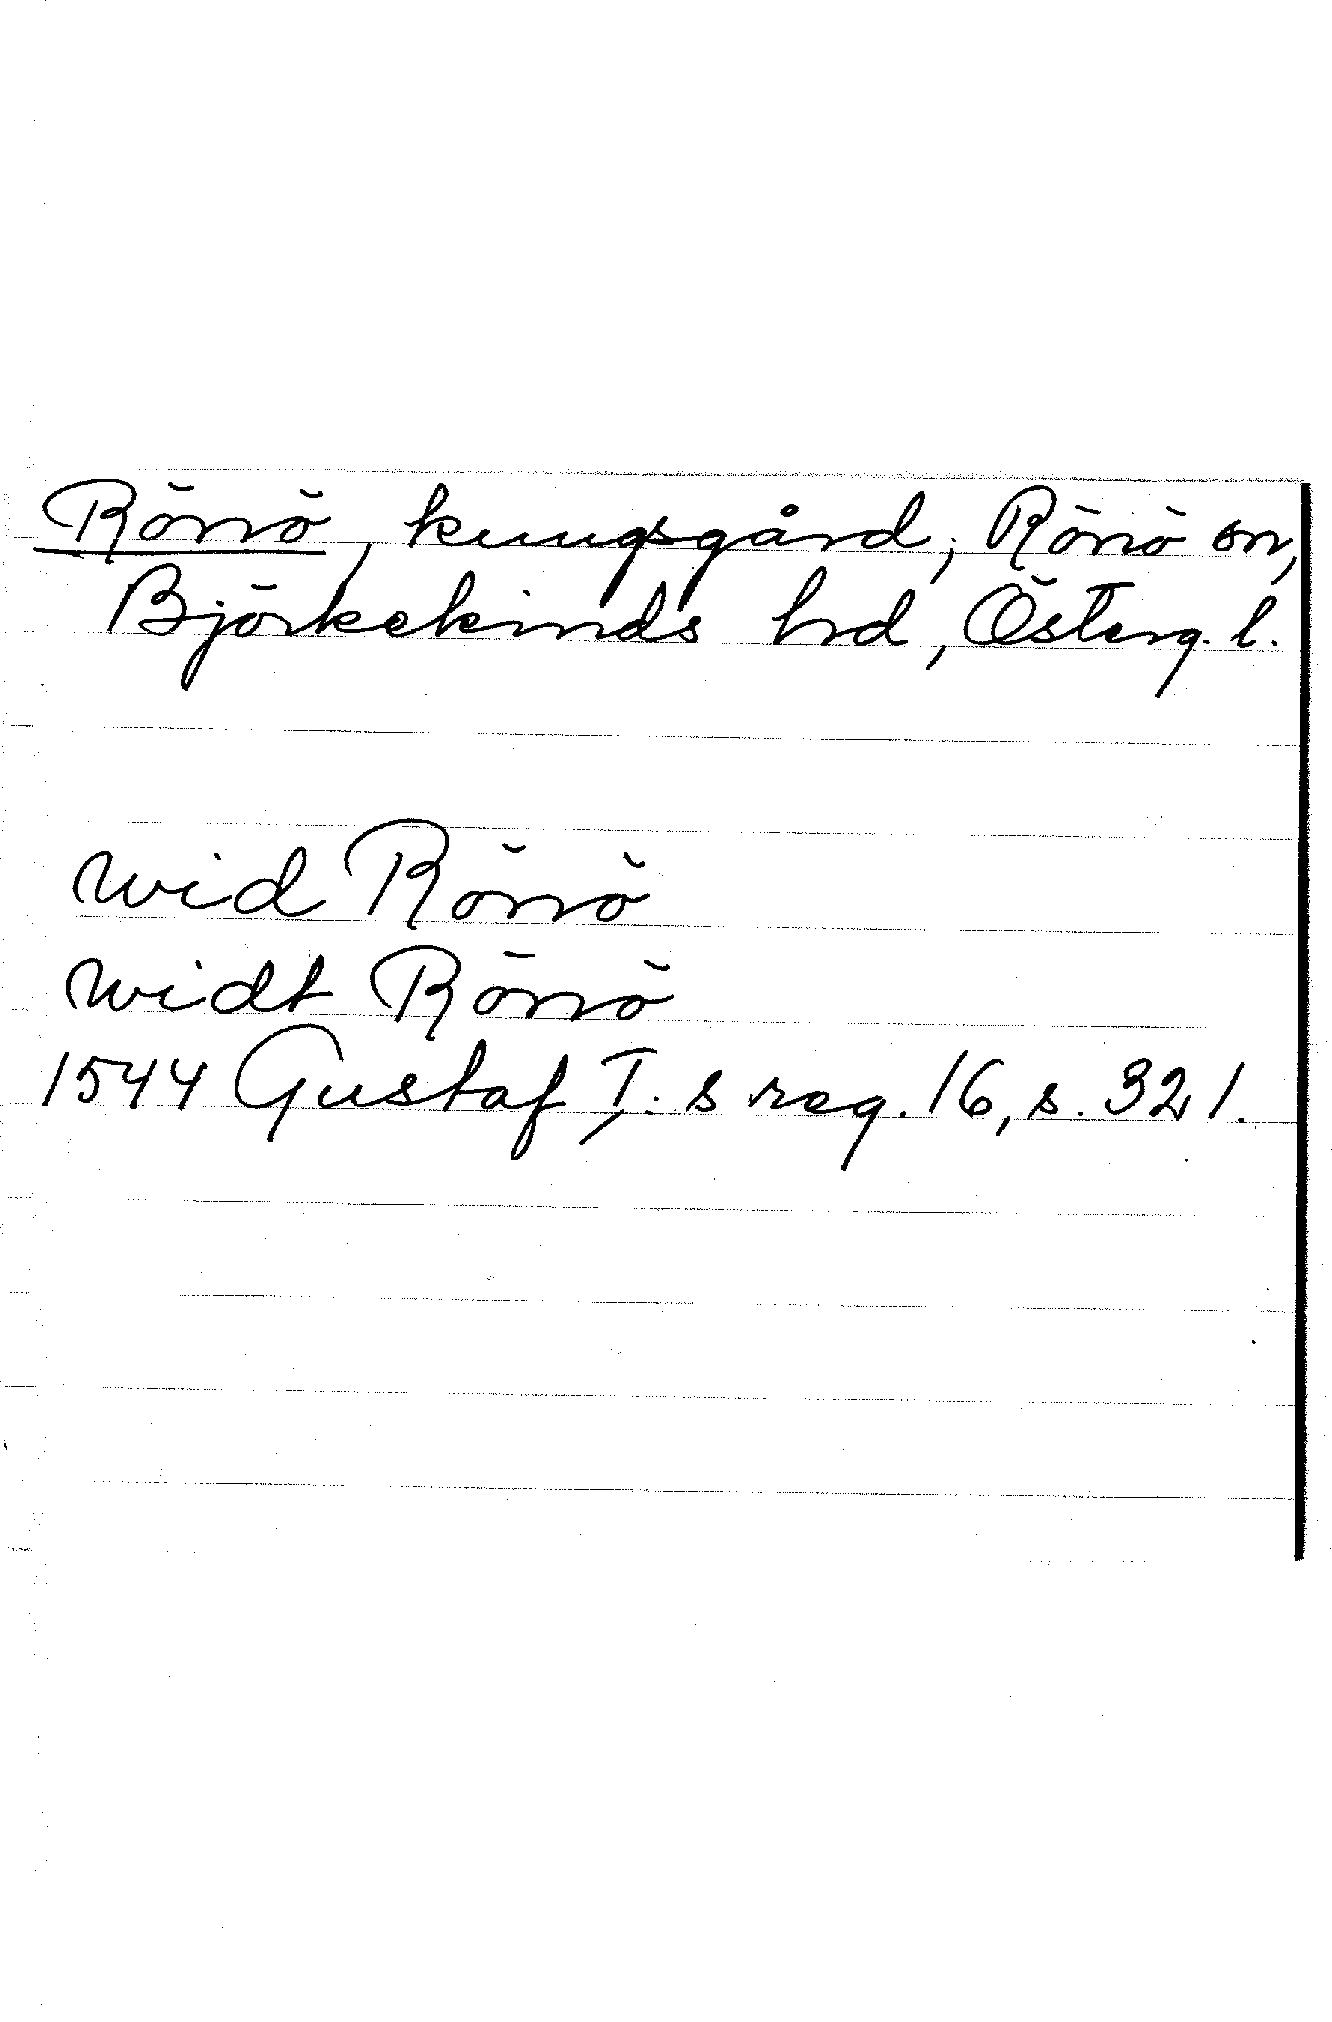 Rönö, kungsgård, Rönö sn,
Björkekinds hrd, Österg. l.
wid Rönö
widt Rönö
1544 Gustaf I:s reg. 16, s. 321.